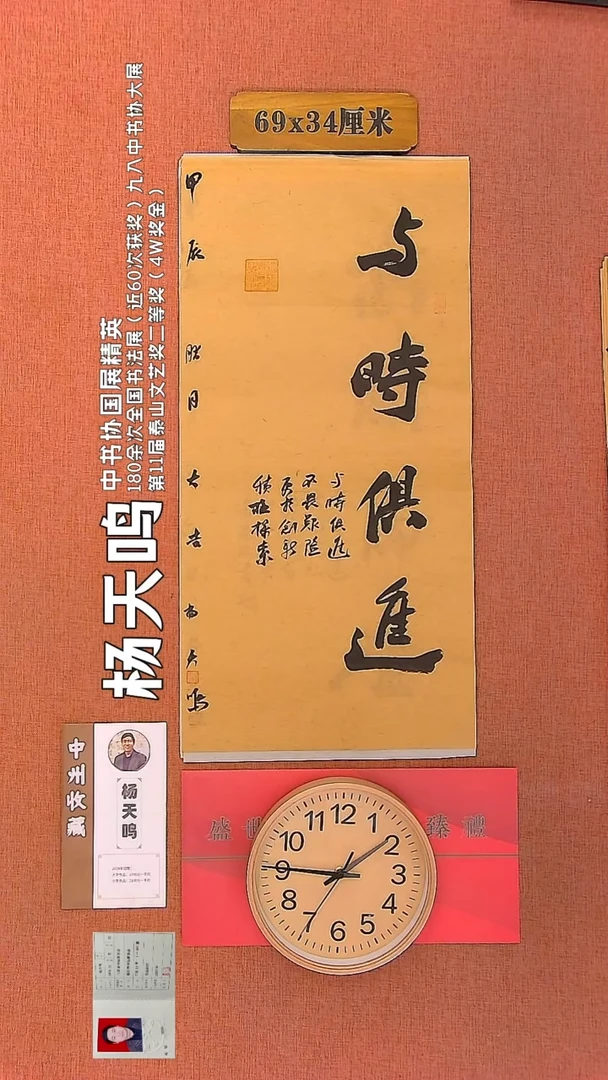 69x34厘米
与時俱進
与時俱進
不畏艰险
勇於创新
積極探索
甲辰
月大吉
杨天鸣
杨天鸣
中书协国展精英
180余次全国书法展（近60次获奖）九八中书协大展
第11届泰山文艺奖二等奖（4W奖金）
杨天鸣
盛世
臻禮
12
1
2
3
4
5
6
7
8
9
10
11